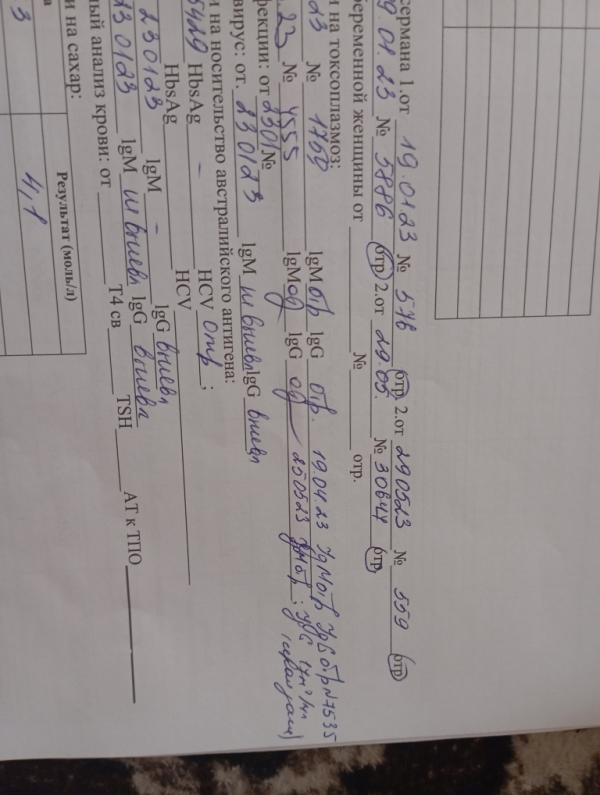 сермана 1.от 19.0123 № 576 отр 2.от 290523 № 559 отр
9.01 23 № 5886 отр 2.от 29.05. № 30644 отр
беременной женщины от № отр.
и на токсоплазмоз:
23 № 1758 IgM отр IgG отр. 19.04.23 IgM отр IgG отр N 1535
23 № 4555 IgM IgG 250523
фекции: от 2301 №
вирус: от. 230123 IgM не выявл IgG выявл
и на носительство австралийского антигена:
5429 HbsAg – HCV отр ;
HbsAg HCV
230123 IgM – IgG выявл
23 0123 IgM не выявл IgG выявл
ный анализ крови: от Т4 св TSH АТ к ТПО
и на сахар:
Результат (моль/л)
3 4,1